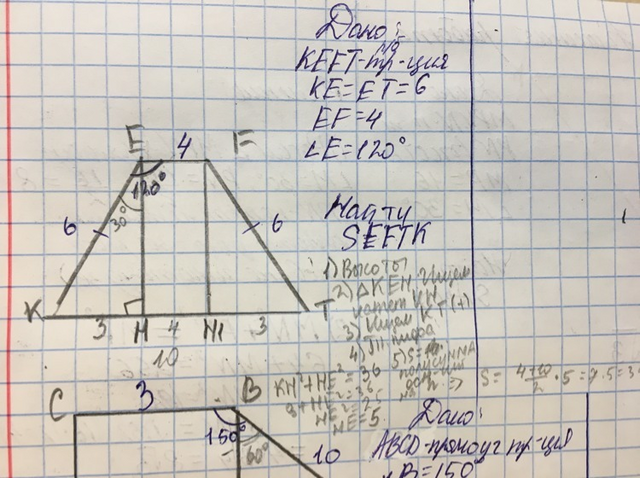 Дано:
KEFT - тр-ция
KE = ET = 6
EF = 4
∠E = 120°
E 4 F
120°
30°
6
6
K 3 H 4 H1 3 T
10
Найти
SEFTK
1) Высоты
2) △KEH, ищем
катет KH
3) Ищем KT (+)
4) ТП пифа
5) S =
полусумма
на h =>
KH²+HE² = 36
3+HE² = 36
HE² = 25
HE = 5.
S = 4+10/2 · 5 = 7·5 = 3
C 3 B
150°
60°
10
Дано:
ABCD - прямоуг тр-ция
∠B = 150°